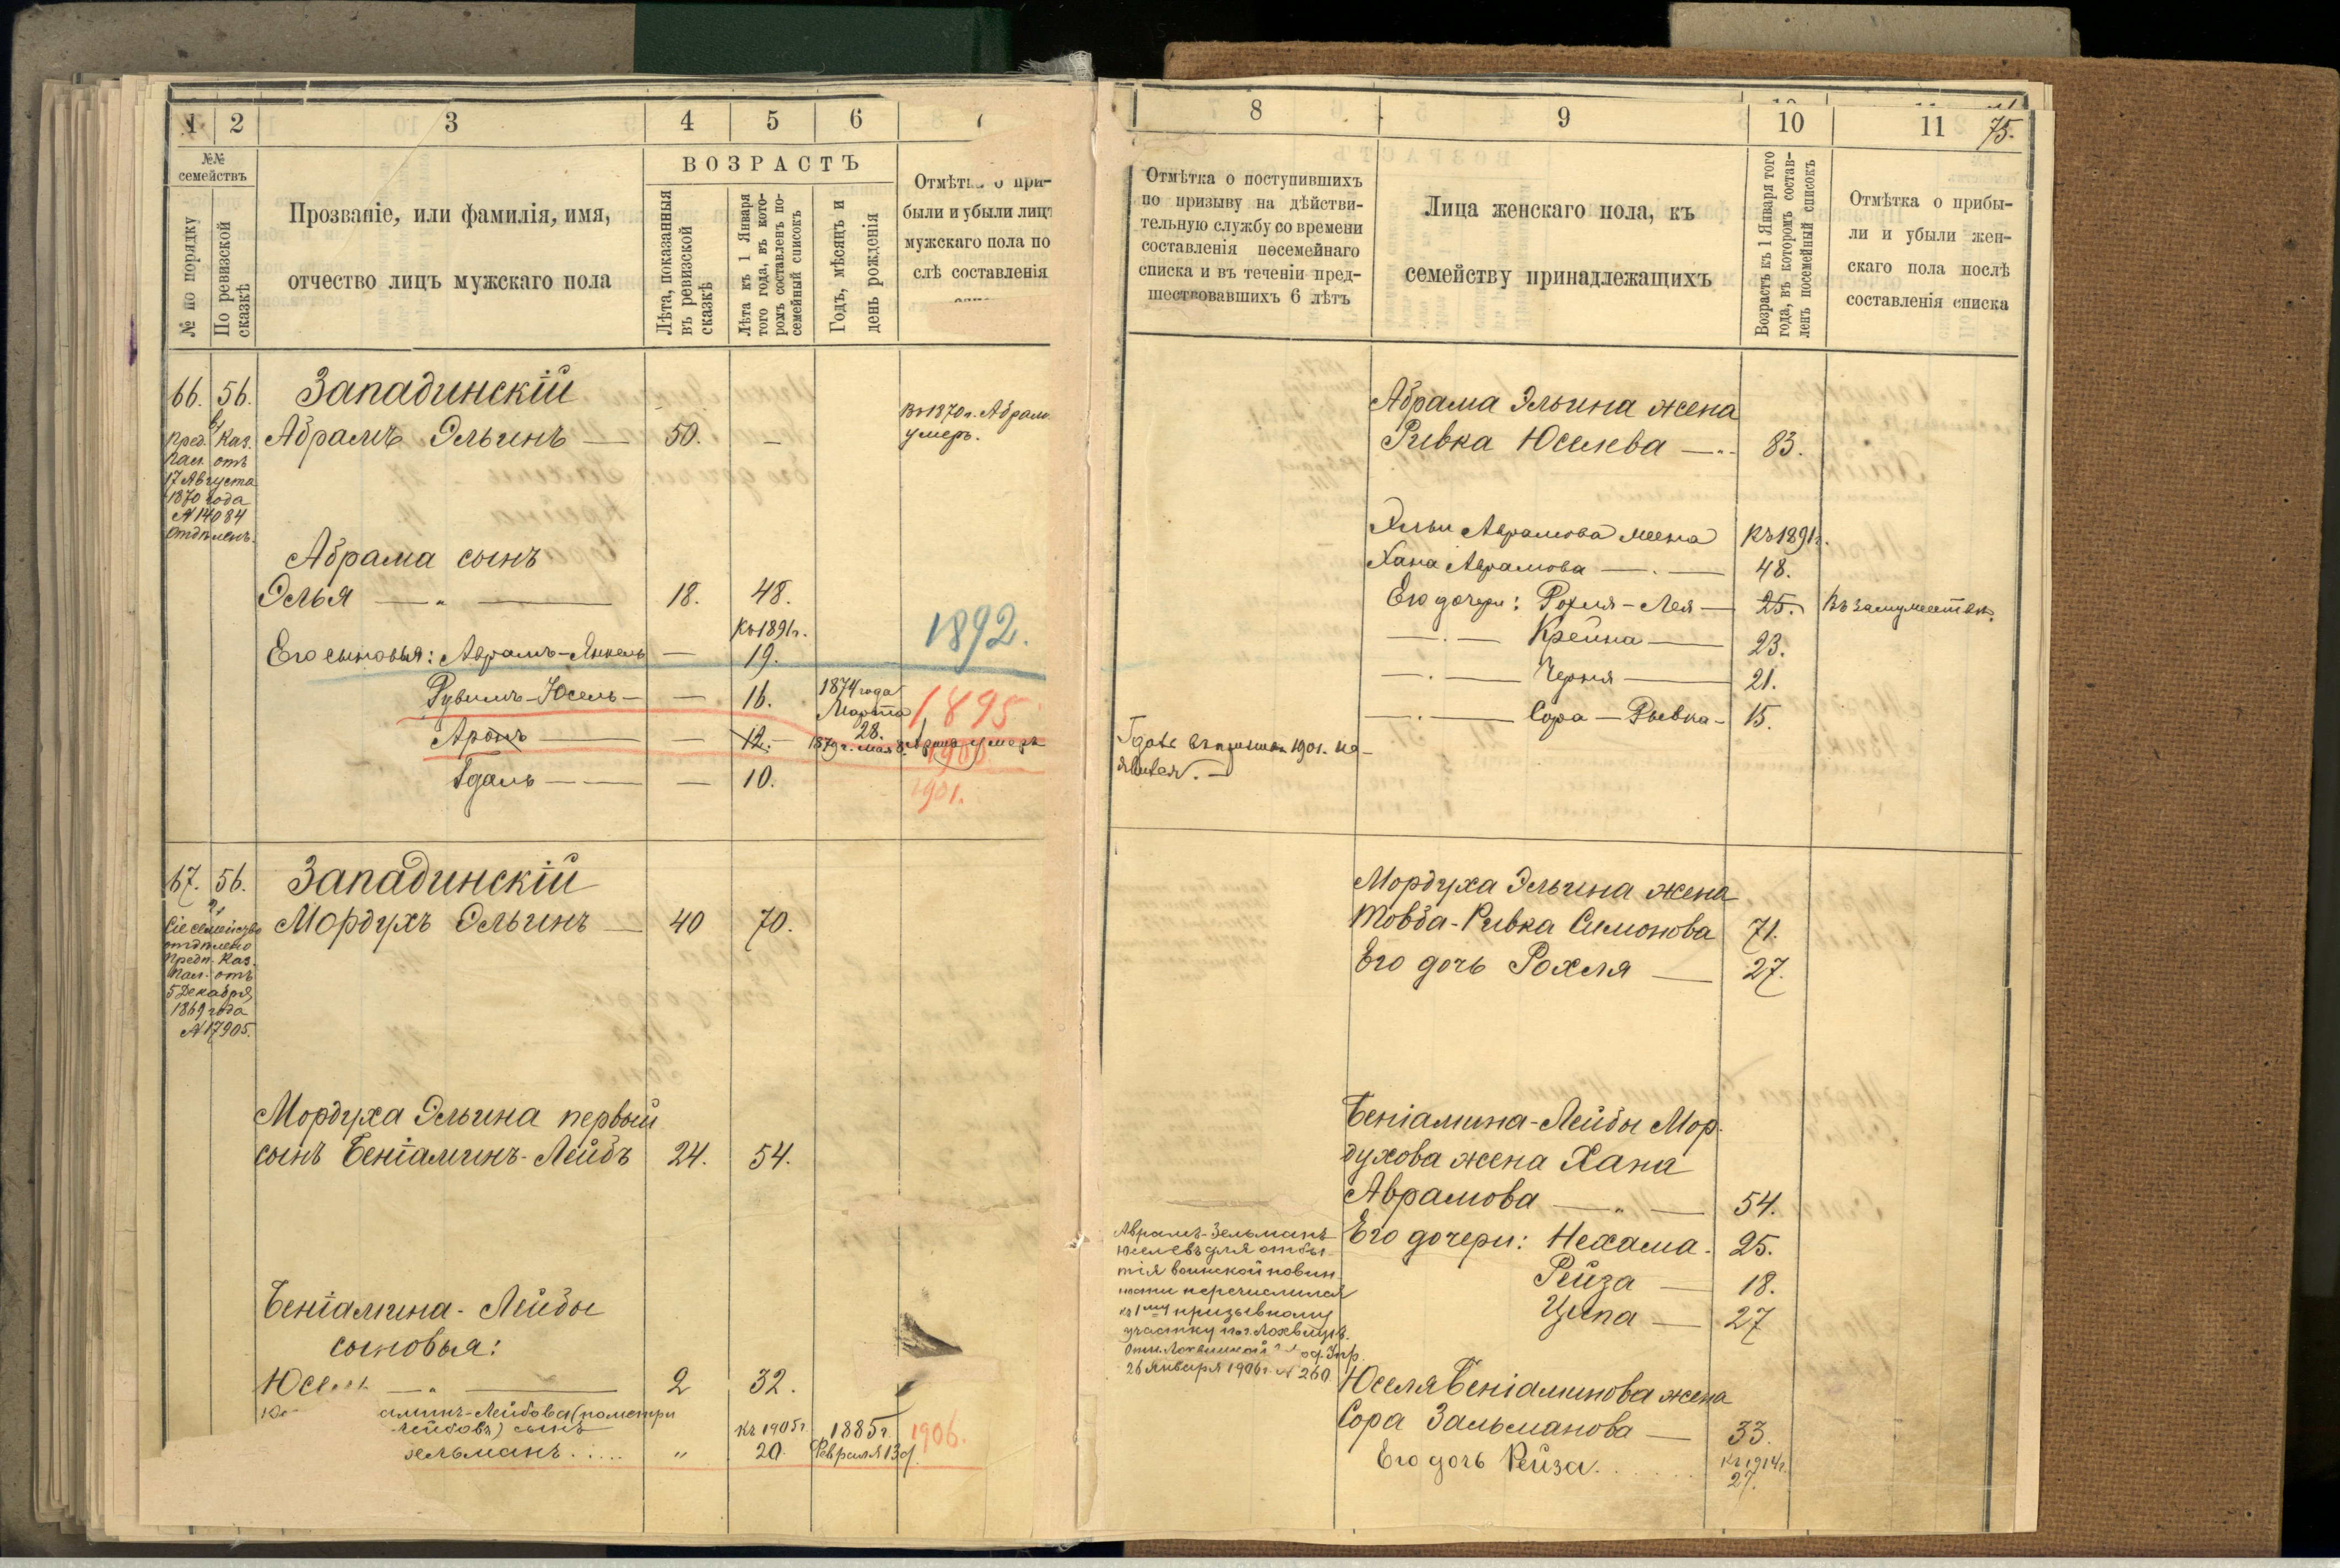 1 2 3 4 5 6
№№ семействъ
№ по порядку
По ревизской сказкѣ
Прозваніе, или фамилія, имя,
отчество лицъ мужскаго пола
ВОЗРАСТЪ
Лѣта, показанныя въ ревизской сказкѣ
Лѣта къ 1 Января того года, въ кото-ромъ составленъ по-семейный списокъ
Годъ, мѣсяцъ и день рожденія
Отмѣтка о при-
были и убыли лицъ
мужскаго пола по
слѣ составленія
66. 56. Западинскій
Абрамъ Эльинъ — 50. —
Въ 1870 г. Абрам
умеръ.
Пред. Каз.
Пал. отъ
17 Августа
1870 года
№ 14084
отдѣленъ.
Абрама сынъ
Элья — " — 18. 48.
Къ 1891 г.
1892.
Его сыновья: Абрамъ-Янкель — 19.
Рувимъ-Юсель — — 16. 1874 года Марта 28. 1895
Аронъ — — 12. 1879 г. мая 8. Аронъ умеръ 1900.
Гдаль — — — 10. 1901.
67. 56. Западинскій
Мордухъ Эльинъ — 40 70.
Сіе семейство
отдѣлено
Предп. Каз.
Пал. отъ
5 Декабря
1869 года
№ 17905.
Мордуха Эльина первый
сынъ Беніаминъ-Лейбъ 24. 54.
Беніамина-Лейбы
сыновья:
Юсель — " — 2 32.
аминъ-Лейбова (по метри
Лейбовъ) сынъ
Къ 1905 г. 1885 г. 1906.
Зельманъ . . . . . " 20. Февраля 13 д.
8 9 10 11 75.
Отмѣтка о поступившихъ
по призыву на дѣйстви-
тельную службу со времени
составленія посемейнаго
списка и въ теченіи пред-
шествовавшихъ 6 лѣтъ
Лица женскаго пола, къ
семейству принадлежащихъ
Возрастъ къ 1 Января того года, въ которомъ состав-ленъ посемейный списокъ
Отмѣтка о прибы-
ли и убыли жен-
скаго пола послѣ
составленія списка
Абрама Эльина жена
Ривка Юселева — 83.
Эльи Абрамова жена Къ 1891 г.
Хана Абрамова — . — 48.
Его дочери: Рохля-Лея — 25. Въ замужествѣ.
— . — Крейна — 23.
— . — Черня — 21.
— . — Сора-Рывка — 15.
Гдаль въ призывъ 1901. не
явился. —
Мордуха Эльина жена
Товба-Ривка Симонова 71.
Его дочь Рохля — 27.
Беніамина-Лейбы Мор-
духова жена Хана
Аврамова — " — 54.
Его дочери: Нехама. 25.
Рейза — 18.
Ципа — 27
Аврамъ-Зельманъ
Юселевъ для отбы-
тія воинской повин-
ности перечислился
къ 1му призывному
участку по г. Лохвицѣ.
26 Января 1906 г. № 260
Юселя Беніаминова жена
Сора Зальманова — 33.
Къ 1914 г.
Его дочь Рейза. . . . . . 27.